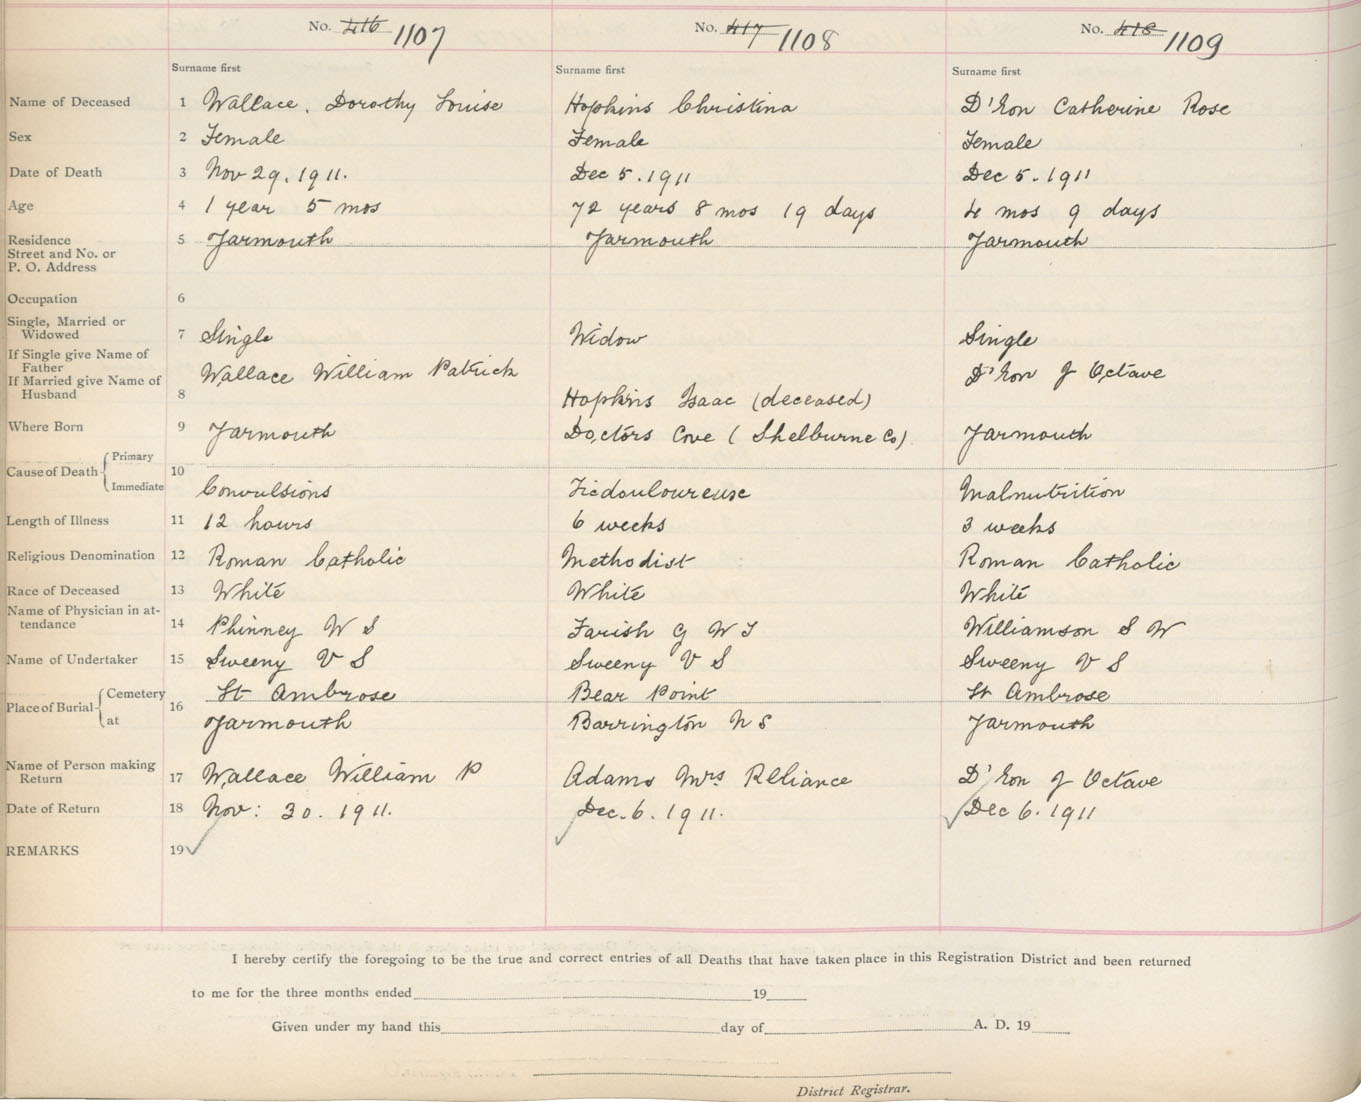 No. 416 1107 No. 417 1108 No. 418 1109
Surname first Surname first Surname first
Name of Deceased 1 Wallace, Dorothy Louise Hopkins Christina D'Eon Catherine Rose
Sex 2 Female Female Female
Date of Death 3 Nov 29. 1911. Dec 5. 1911 Dec 5. 1911
Age 4 1 year 5 mos 72 years 8 mos 19 days 4 mos 9 days
Residence 5 Yarmouth Yarmouth Yarmouth
Street and No. or
P. O. Address
Occupation 6
Single, Married or
Widowed 7 Single Widow Single
If Single give Name of
Father Wallace William Patrick D'Eon J Octave
If Married give Name of
Husband 8 Hopkins Isaac (deceased)
Where Born 9 Yarmouth Doctors Cove (Shelburne Co) Yarmouth
Cause of Death Primary 10
Immediate Convulsions Ticdouloureuse Malnutrition
Length of Illness 11 12 hours 6 weeks 3 weeks
Religious Denomination 12 Roman Catholic Methodist Roman Catholic
Race of Deceased 13 White White White
Name of Physician in at-
tendance 14 Phinney W S Farish G W T Williamson S W
Name of Undertaker 15 Sweeny V S Sweeny V S Sweeny V S
Place of Burial Cemetery 16 St Ambrose Bear Point St Ambrose
at Yarmouth Barrington N S Yarmouth
Name of Person making
Return 17 Wallace William P Adams Mrs Reliance D'Eon J Octave
Date of Return 18 Nov: 30. 1911. Dec. 6. 1911. Dec 6. 1911
REMARKS 19
I hereby certify the foregoing to be the true and correct entries of all Deaths that have taken place in this Registration District and been returned
to me for the three months ended 19
Given under my hand this day of A. D. 19
District Registrar.